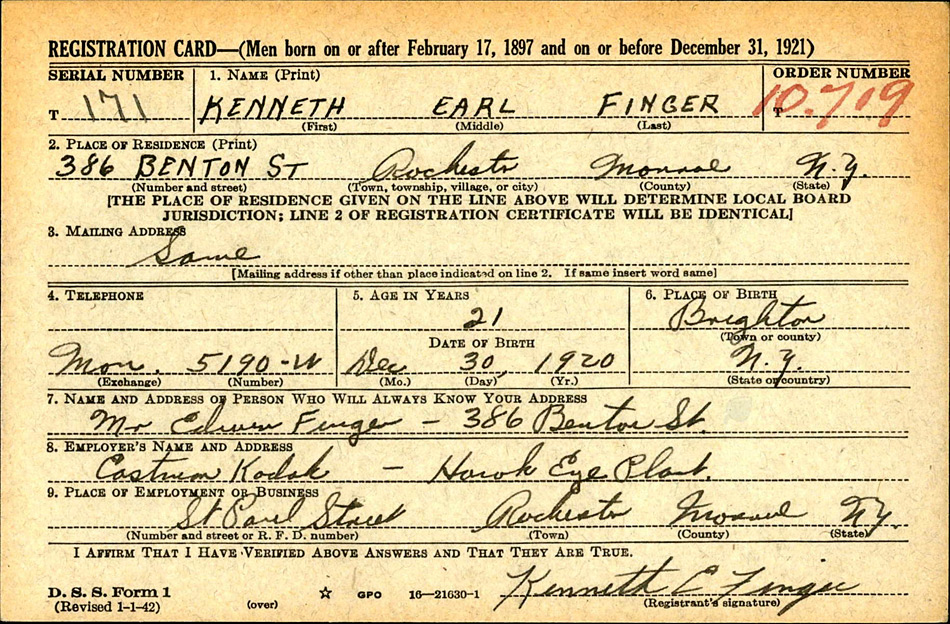 REGISTRATION CARD—(Men born on or after February 17, 1897 and on or before December 31, 1921)
SERIAL NUMBER 1. NAME (Print) ORDER NUMBER
T 171 KENNETH EARL FINGER T 10,719
(First) (Middle) (Last)
2. PLACE OF RESIDENCE (Print)
386 BENTON ST Rochester Monroe N.Y.
(Number and street) (Town, township, village, or city) (County) (State)
[THE PLACE OF RESIDENCE GIVEN ON THE LINE ABOVE WILL DETERMINE LOCAL BOARD
JURISDICTION; LINE 2 OF REGISTRATION CERTIFICATE WILL BE IDENTICAL]
3. MAILING ADDRESS
Same
[Mailing address if other than place indicated on line 2. If same insert word same]
4. TELEPHONE 5. AGE IN YEARS 6. PLACE OF BIRTH
21 Brighton
DATE OF BIRTH (Town or county)
Mon. 5190-W Dec 30, 1920 N.Y.
(Exchange) (Number) (Mo.) (Day) (Yr.) (State or country)
7. NAME AND ADDRESS OF PERSON WHO WILL ALWAYS KNOW YOUR ADDRESS
Mr Edwin Finger - 386 Benton St.
8. EMPLOYER'S NAME AND ADDRESS
Eastman Kodak - Hawk Eye Plant.
9. PLACE OF EMPLOYMENT OR BUSINESS
St Paul Street Rochester Monroe N.Y.
(Number and street or R. F. D. number) (Town) (County) (State)
I AFFIRM THAT I HAVE VERIFIED ABOVE ANSWERS AND THAT THEY ARE TRUE.
D. S. S. Form 1
(Revised 1-1-42) (over) ☆ GPO 16—21630-1 Kenneth E Finger
(Registrant's signature)